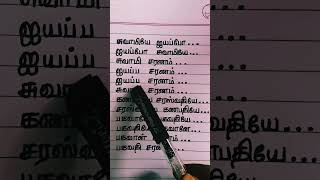 சுவாமியே ஐயப்போ...
ஐயப்போ சுவாமியே...
சுவாமி சரணம்...
ஐயப்ப சரணம்...
ஐயப்ப சரணம்...
சுவாமி சரணம்...
சரஸ்வதியே...
கணபதியே...
பகவானே...
பகவான்
பகவதி